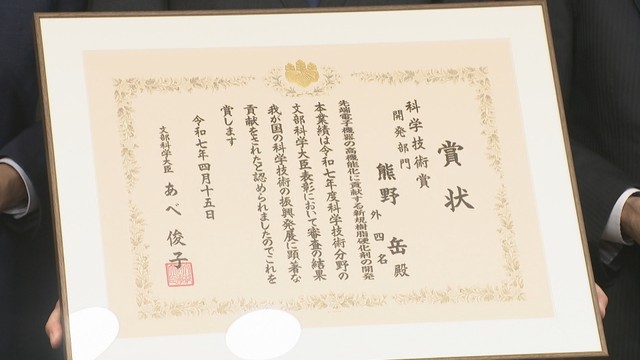 賞状
科学技術賞
開発部門
熊野岳殿
外四名
先端電子機器の高機能化に貢献する新規樹脂硬化剤の開発
本業績は令和七年度科学技術分野の
文部科学大臣表彰において審査の結果
我が国の科学技術の振興発展に顕著な
貢献をされたと認められましたのでこれを
賞します
令和七年四月十五日
文部科学大臣 あべ俊子